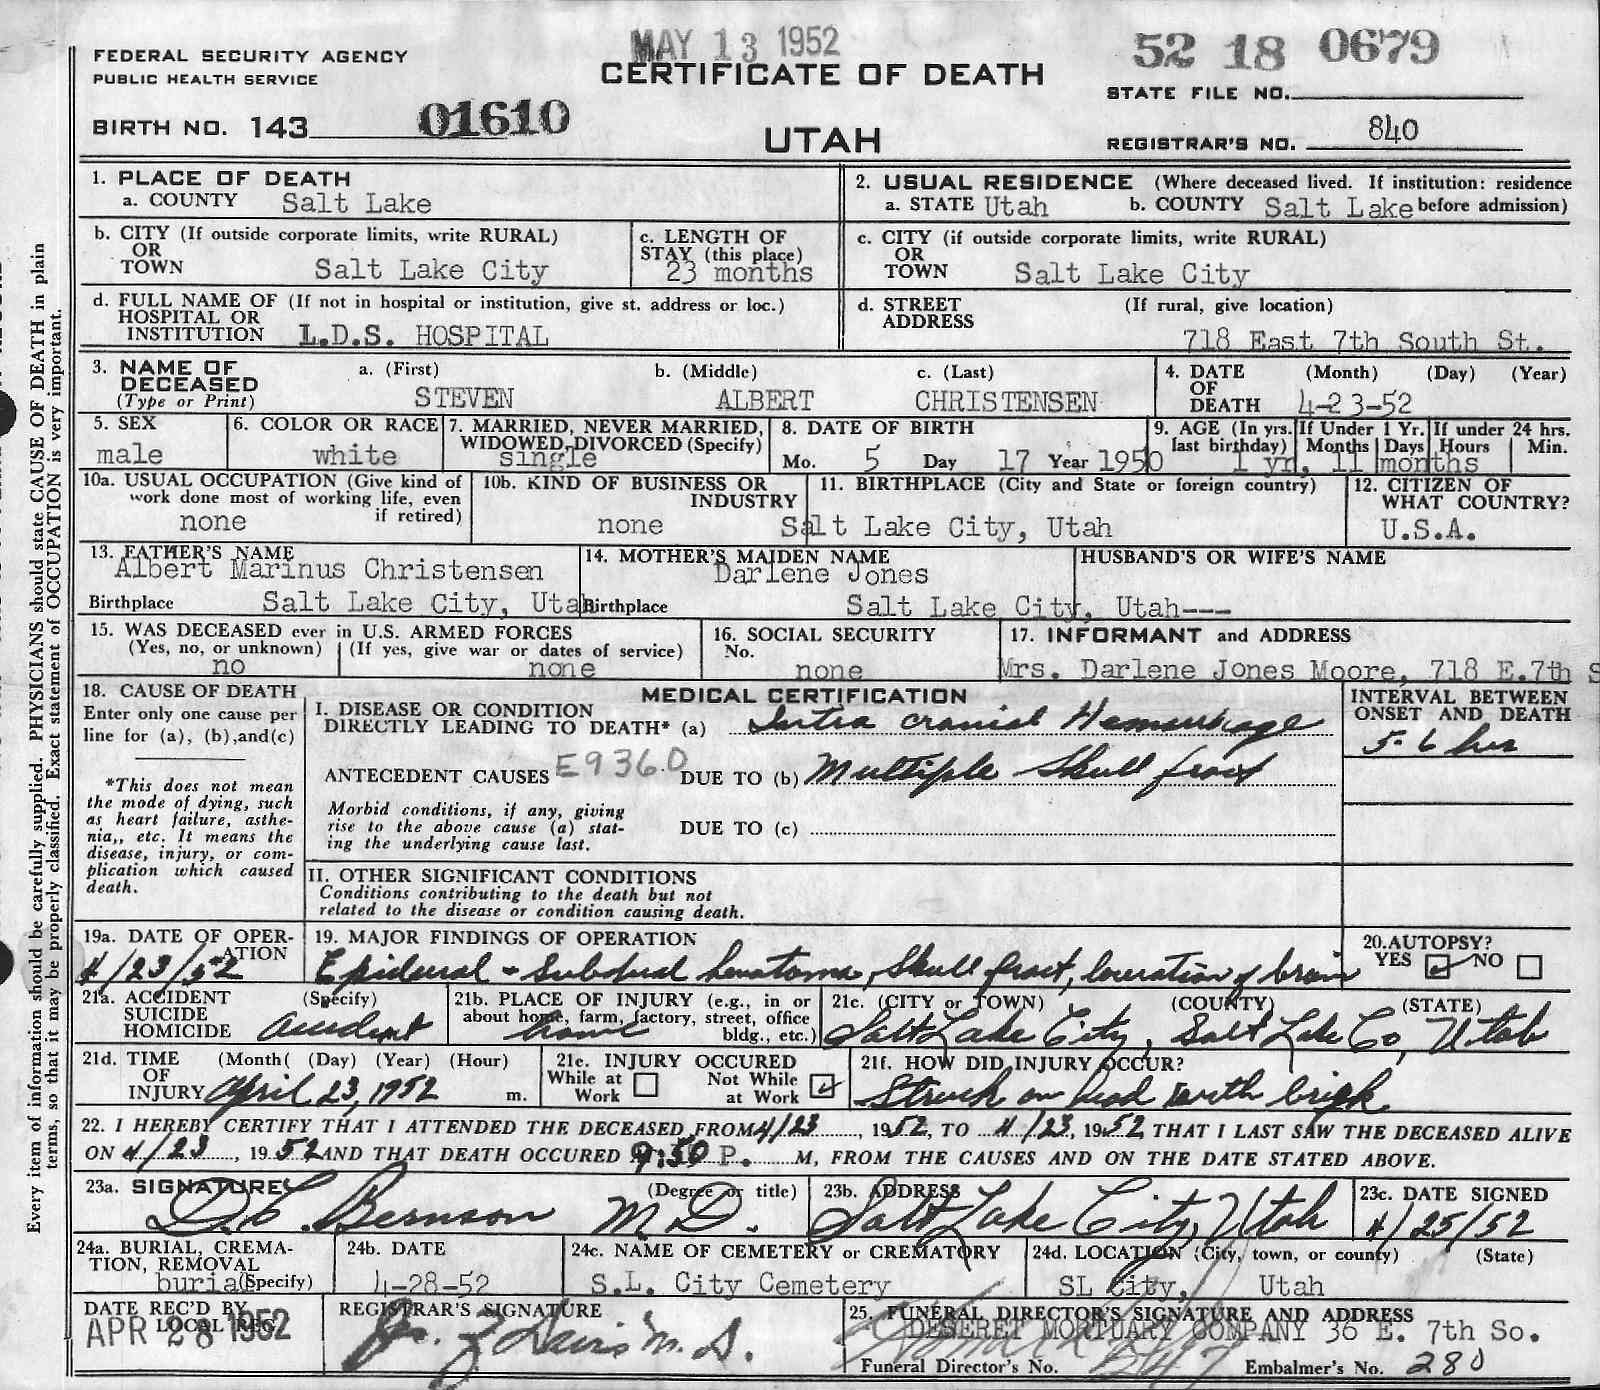 MAY 13 1952
52 18 0679
FEDERAL SECURITY AGENCY
PUBLIC HEALTH SERVICE
CERTIFICATE OF DEATH
STATE FILE NO.
BIRTH NO. 143 01610
UTAH
REGISTRAR'S NO. 840
Every item of information should be carefully supplied. PHYSICIANS should state CAUSE OF DEATH in plain
terms, so that it may be properly classified. Exact statement of OCCUPATION is very important.
1. PLACE OF DEATH
a. COUNTY Salt Lake
2. USUAL RESIDENCE (Where deceased lived. If institution: residence
a. STATE Utah b. COUNTY Salt Lake before admission)
b. CITY (If outside corporate limits, write RURAL)
OR
TOWN Salt Lake City
c. LENGTH OF
STAY (this place)
23 months
c. CITY (if outside corporate limits, write RURAL)
OR
TOWN Salt Lake City
d. FULL NAME OF (If not in hospital or institution, give st. address or loc.)
HOSPITAL OR
INSTITUTION L.D.S. HOSPITAL
d. STREET (If rural, give location)
ADDRESS
718 East 7th South St.
3. NAME OF a. (First) b. (Middle) c. (Last)
DECEASED
(Type or Print) STEVEN ALBERT CHRISTENSEN
4. DATE (Month) (Day) (Year)
OF
DEATH 4-23-52
5. SEX
male
6. COLOR OR RACE
white
7. MARRIED, NEVER MARRIED,
WIDOWED, DIVORCED (Specify)
single
8. DATE OF BIRTH
Mo. 5 Day 17 Year 1950
9. AGE (In yrs. If Under 1 Yr. If under 24 hrs.
last birthday) Months Days Hours Min.
1 yr, 11 months
10a. USUAL OCCUPATION (Give kind of
work done most of working life, even
if retired)
none
10b. KIND OF BUSINESS OR
INDUSTRY
none
11. BIRTHPLACE (City and State or foreign country)
Salt Lake City, Utah
12. CITIZEN OF
WHAT COUNTRY?
U.S.A.
13. FATHER'S NAME
Albert Marinus Christensen
Birthplace Salt Lake City, Utah
14. MOTHER'S MAIDEN NAME
Darlene Jones
Birthplace Salt Lake City, Utah---
HUSBAND'S OR WIFE'S NAME
15. WAS DECEASED ever in U.S. ARMED FORCES
(Yes, no, or unknown) (If yes, give war or dates of service)
no none
16. SOCIAL SECURITY
No.
none
17. INFORMANT and ADDRESS
Mrs. Darlene Jones Moore, 718 E.7th S
18. CAUSE OF DEATH
Enter only one cause per
line for (a), (b),and(c)
*This does not mean
the mode of dying, such
as heart failure, asthe-
nia,, etc. It means the
disease, injury, or com-
plication which caused
death.
MEDICAL CERTIFICATION
I. DISEASE OR CONDITION
DIRECTLY LEADING TO DEATH* (a) Intra cranial Hemorrhage
ANTECEDENT CAUSES E936.0 DUE TO (b) Multiple Skull fract
Morbid conditions, if any, giving
rise to the above cause (a) stat-
ing the underlying cause last.
DUE TO (c)
INTERVAL BETWEEN
ONSET AND DEATH
5-6 hrs
II. OTHER SIGNIFICANT CONDITIONS
Conditions contributing to the death but not
related to the disease or condition causing death.
19a. DATE OF OPER-
ATION
4/23/52
19. MAJOR FINDINGS OF OPERATION
Epidural + Subdural hematoma, Skull fract, laceration of brain
20. AUTOPSY?
YES NO
21a. ACCIDENT (Specify)
SUICIDE
HOMICIDE accident
21b. PLACE OF INJURY (e.g., in or
about home, farm, factory, street, office
bldg., etc.)
home
21c. (CITY or TOWN) (COUNTY) (STATE)
Salt Lake City, Salt Lake Co, Utah
21d. TIME (Month( (Day) (Year) (Hour)
OF
INJURY April 23, 1952 m.
21e. INJURY OCCURED
While at Work Not While at Work
21f. HOW DID INJURY OCCUR?
Struck on head with brick
22. I HEREBY CERTIFY THAT I ATTENDED THE DECEASED FROM 4/23, 1952, TO 4/23, 1952, THAT I LAST SAW THE DECEASED ALIVE
ON 4/23, 1952 AND THAT DEATH OCCURED 9:50 P. M, FROM THE CAUSES AND ON THE DATE STATED ABOVE.
23a. SIGNATURE (Degree or title)
D.C. Bernson M.D.
23b. ADDRESS
Salt Lake City, Utah
23c. DATE SIGNED
4/25/52
24a. BURIAL, CREMA-
TION, REMOVAL
burial (Specify)
24b. DATE
4-28-52
24c. NAME OF CEMETERY or CREMATORY
S.L. City Cemetery
24d. LOCATION (City, town, or county) (State)
SL City, Utah
DATE REC'D BY
LOCAL REG.
APR 28 1952
REGISTRAR'S SIGNATURE
25. FUNERAL DIRECTOR'S SIGNATURE AND ADDRESS
DESERET MORTUARY COMPANY 36 E. 7th So.
Funeral Director's No. 547 Embalmer's No. 280